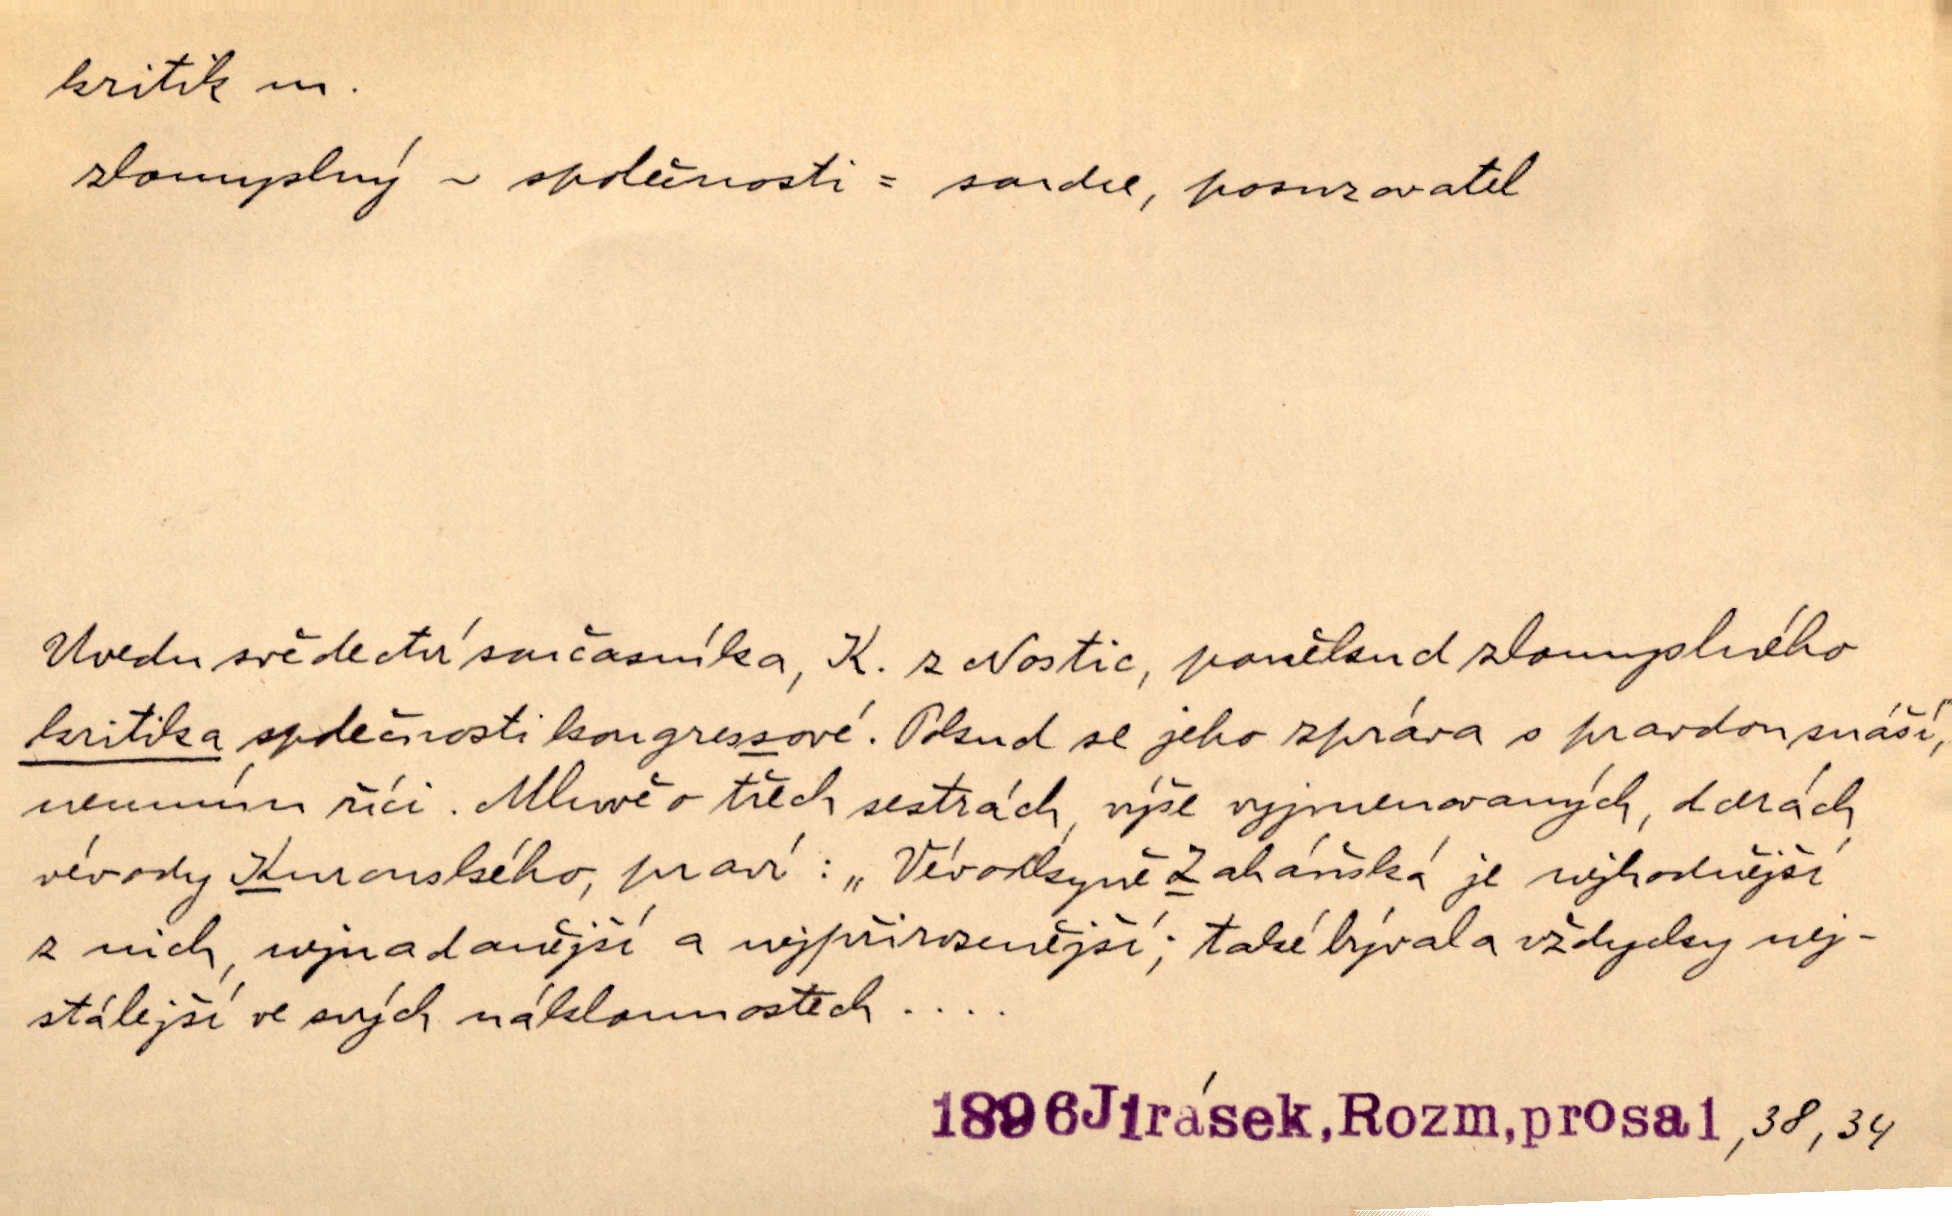 kritik m.
zlomyslný ~ společnosti = soudce, posuzovatel
Uvedu svědectví současníka, K. z Nostic, poněkud zlomyslného
kritika společnosti kongressové. Pokud se jeho zpráva s pravdou snáší,
neumím říci. Mluvě o třech sestrách, výše vyjmenovaných, dcerách
vévody Kuronského, praví: „Vévodkyně Zaháňská je nejhodnější
z nich, nejnadanější a nejpřirozenější; také bývala vždycky nej-
stálejší ve svých náklonnostech ....
1896 Jirásek, Rozm, prosa 1, 38, 34